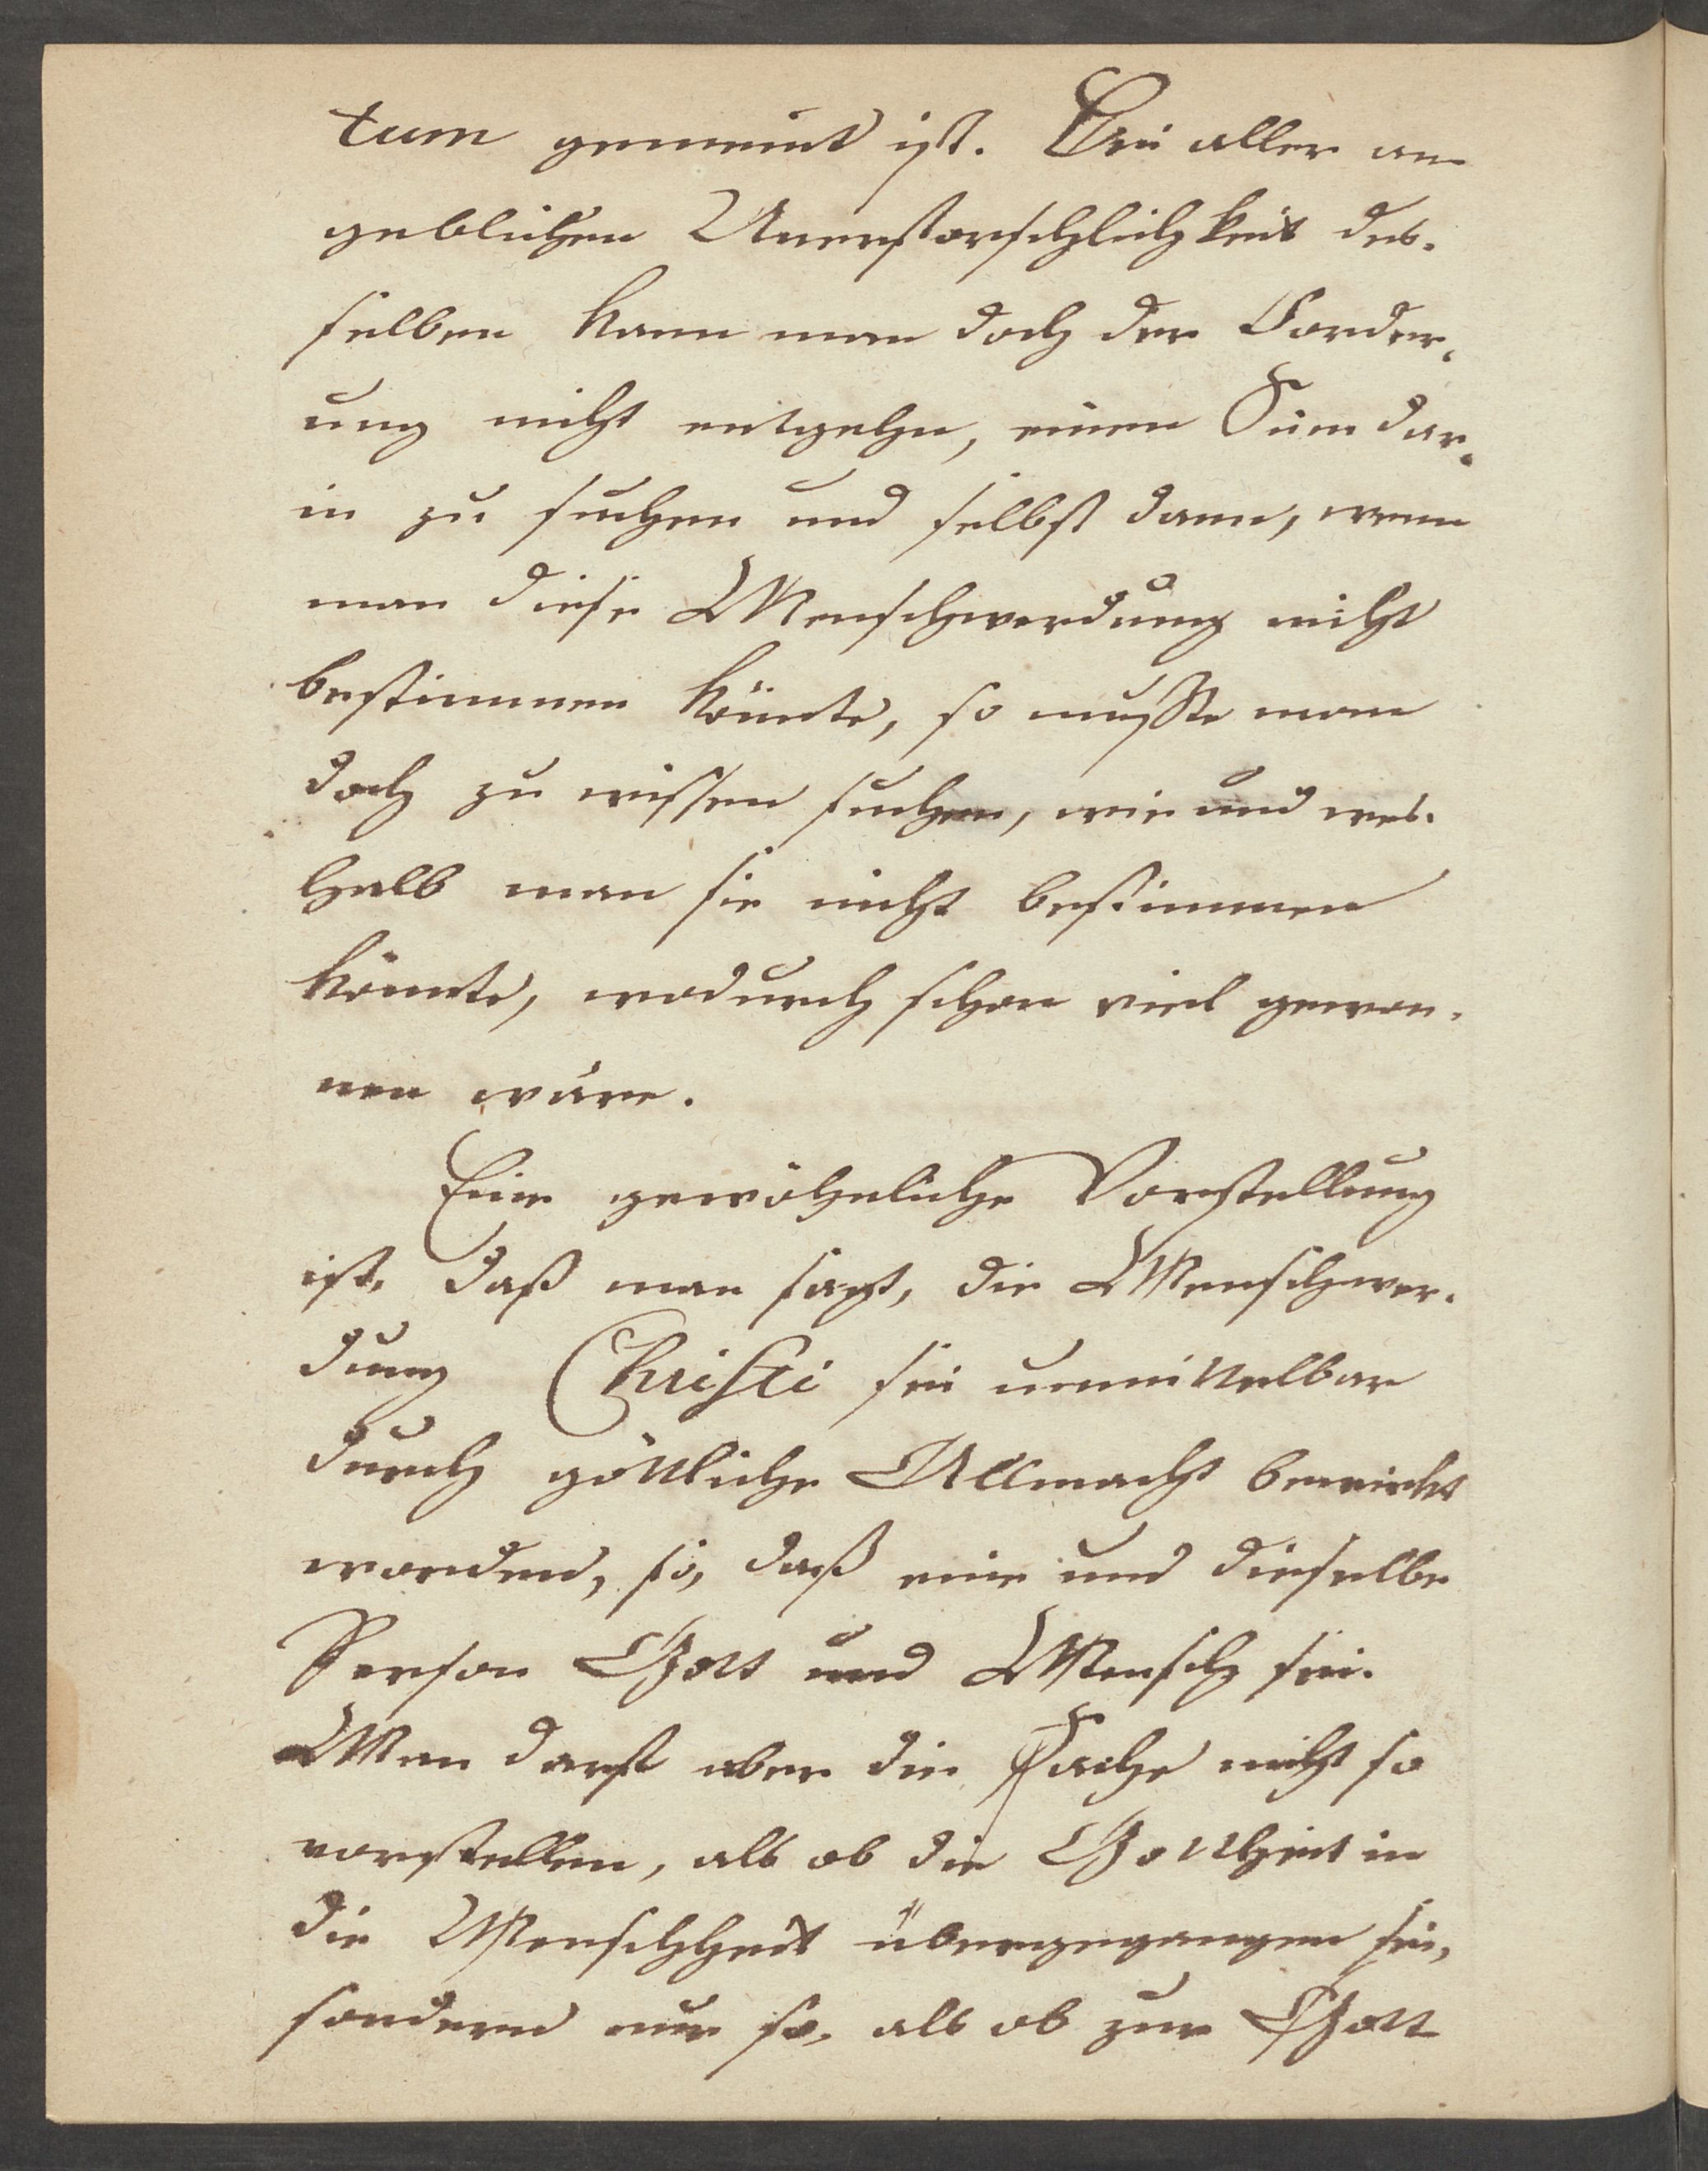 tum gemeint ist. Bei aller an
geblichen Unerforschlichkeit des-
selben kann man doch der Forder-
ung nicht entgehn, einen Sinn dar-
in zu suchen und selbst dann, wenn
man diese Menschwerdung nicht
bestimmen könnte, so müßte man
doch zu wissen suchen, wie und wes-
halb man sie nicht bestimmen
könnte, wodurch schon viel gewon-
nen wäre.
Eine gewöhnliche Vorstellung
ist, daß man sagt, die Menschwer-
dung Christi sei unmittelbar
durch göttliche Allmacht bewirkt
worden, so, daß eine und dieselbe
Person Gott und Mensch sei.
Man darf aber die Sache nicht so
vorstellen, als ob die Gottheit in
die Menschheit übergegangen sei,
sondern nur so, als ob zur Gott